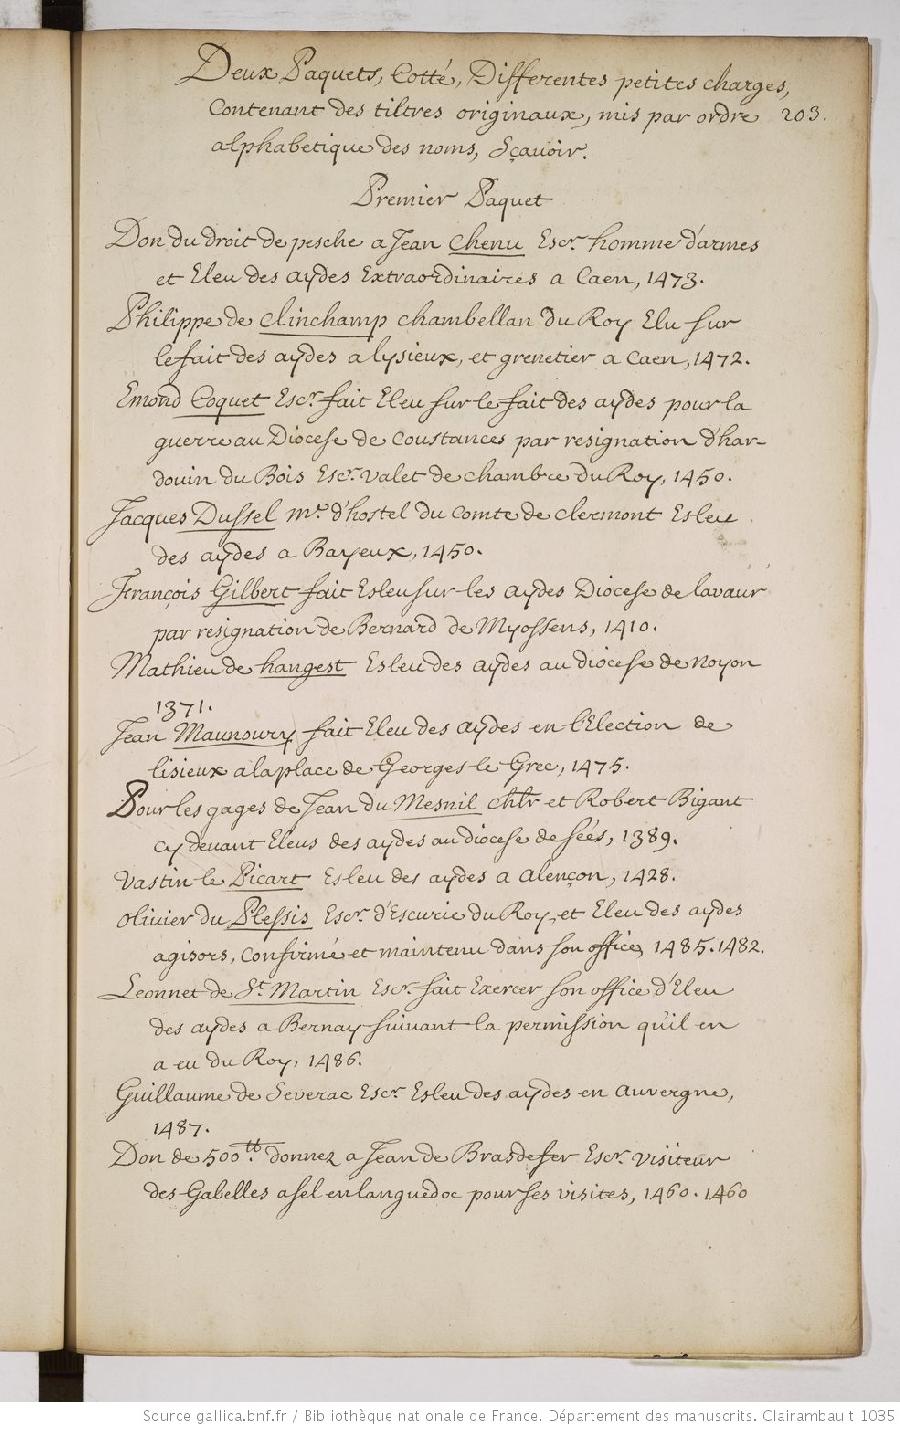 Deux Paquets, Cotté, Differentes petites charges,
Contenant des tiltres originaux, mis par ordre 203.
alphabetique des noms, Sçavoir.
Premier Paquet
Don du droit de pesche a Jean Chenu Escr. homme d'armes
et Eleu des aydes Extraordinaires a Caen, 1473.
Philippe de Clinchamp chambellan du Roy Elu sur
le fait des aydes a lysieux, et grenetier a Caen, 1472.
Emond Coquet Escr. fait Eleu sur le fait des aydes pour la
guerre au Diocese de Coustances par resignation d'har-
douin du Bois Escr. valet de chambre du Roy, 1450.
Jacques Dussel me. d'hostel du Comte de Clermont Esleu
des aydes a Bayeux, 1450.
François Gilbert fait Esleu sur les aydes Diocese de lavaur
par resignation de Bernard de Myossens, 1410.
Mathieu de hangest Esleu des aydes au diocese de Noyon
1371.
Jean Maunoury fait Eleu des aydes en l'Election de
lisieux a la place de Georges le Grec, 1475.
Pour les gages de Jean du Mesnil chlr et Robert Bigant
cy devant Eleus des aydes au diocese de séés, 1389.
Vastin le Picart Esleu des aydes a alençon, 1428.
Olivier du Plessis Escr. d'Escurie du Roy, et Eleu des aydes
a gisors, Confirmé et maintenu dans son office, 1485. 1482.
Leonnet de St. Martin Escr. fait Exercer son office d'Eleu
des aydes a Bernay suivant la permission qu'il en
a eu du Roy, 1486.
Guillaume de Severac Escr. Esleu des aydes en auvergne,
1487.
Don de 500tt. donnez a Jean de Brasdefer Escr. visiteur
des Gabelles a sel en languedoc pour ses visites, 1460. 1460
Source gallica.bnf.fr / Bibliothèque nationale de France. Département des manuscrits. Clairambault 1035